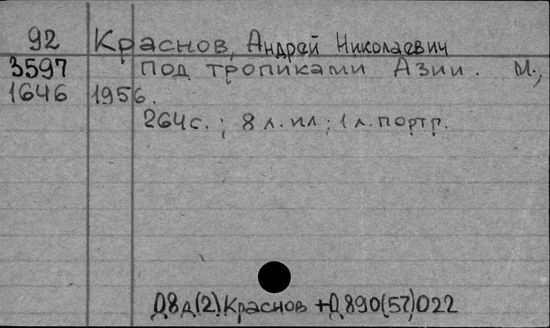 92 Краснов, Андрей Николаевич
3597 Под тропиками Азии. М.,
1646 1956.
264 с.; 8 л. ил; 1 л. портр.
Д8д(2) Краснов + Д890(57)022